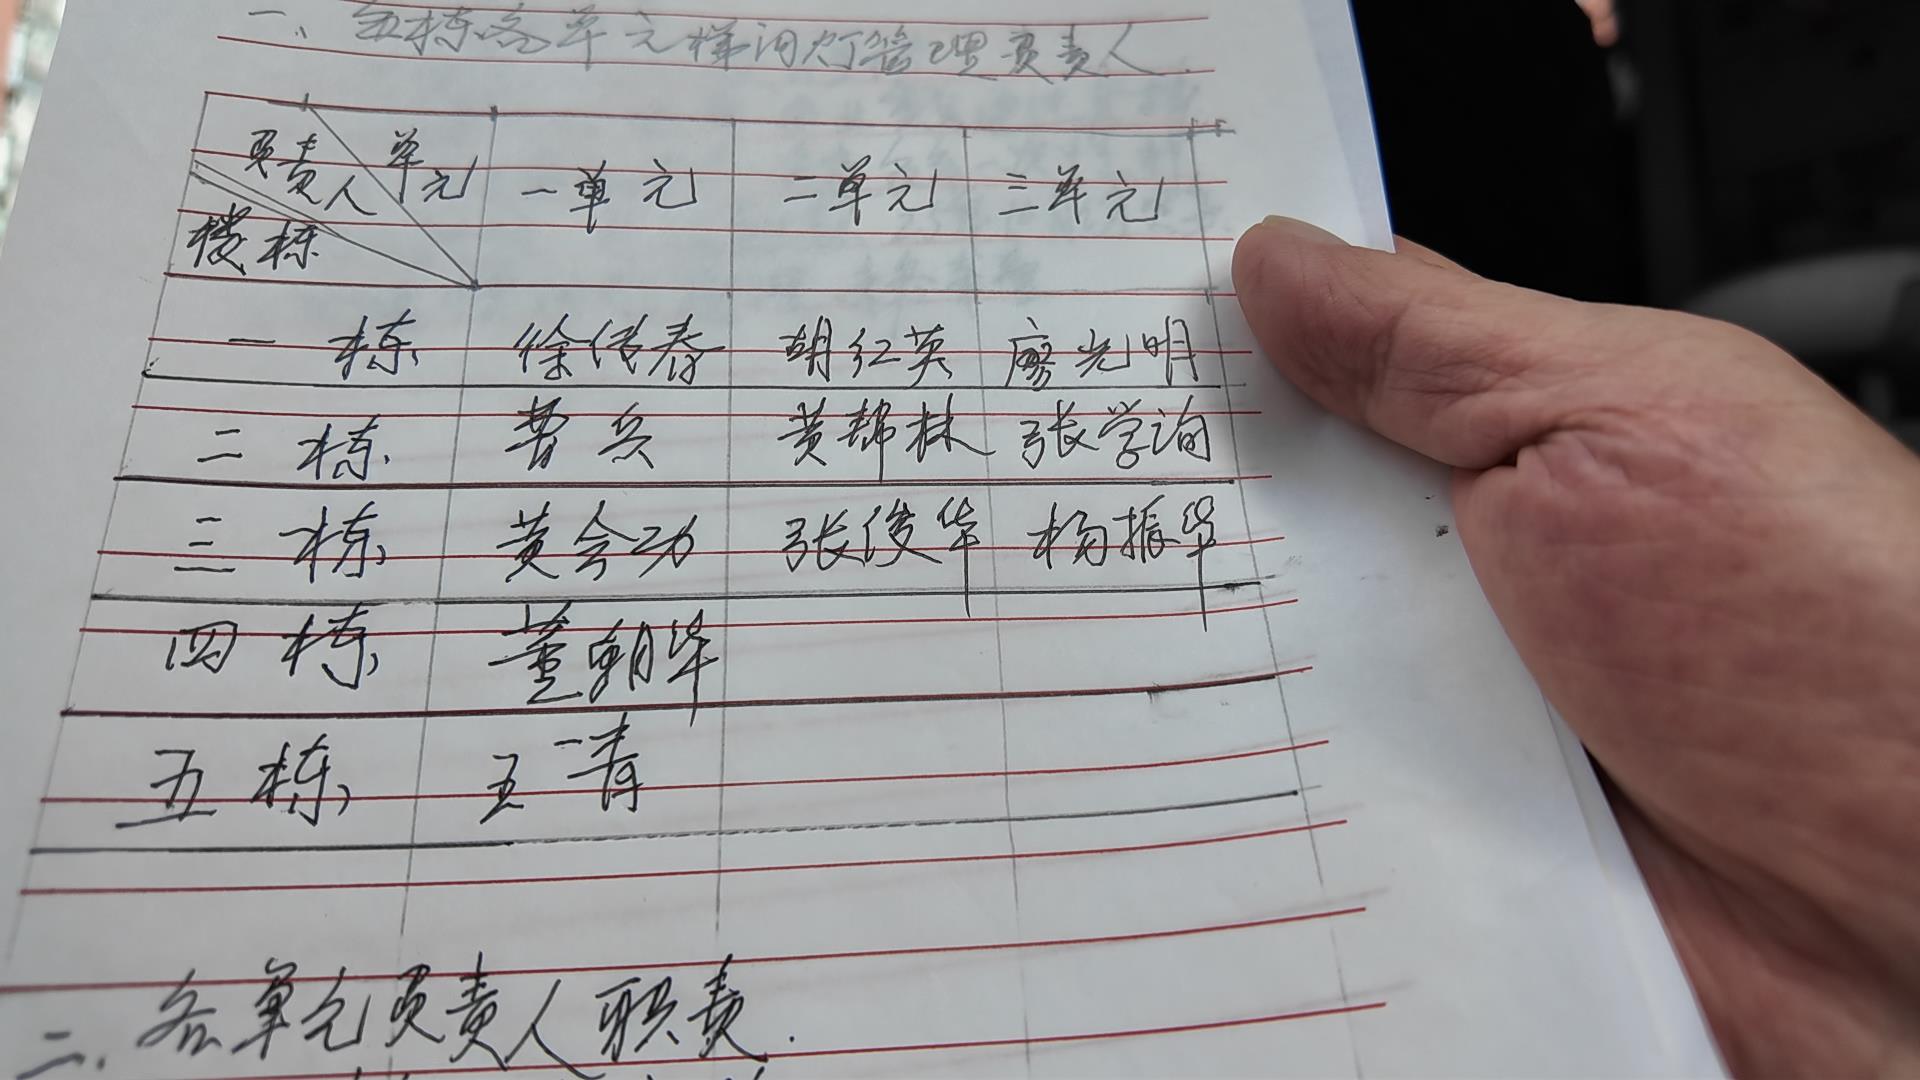 一、五栋各单元梯间灯管理负责人
负责人 单元 一单元 二单元 三单元
楼栋
一栋 徐传春 胡红英 廖光明
二栋 曹兵 黄帮林 张学询
三栋 黄会功 张俊华 杨振华
四栋 董朝华
五栋 王青
二、各单元负责人职责.